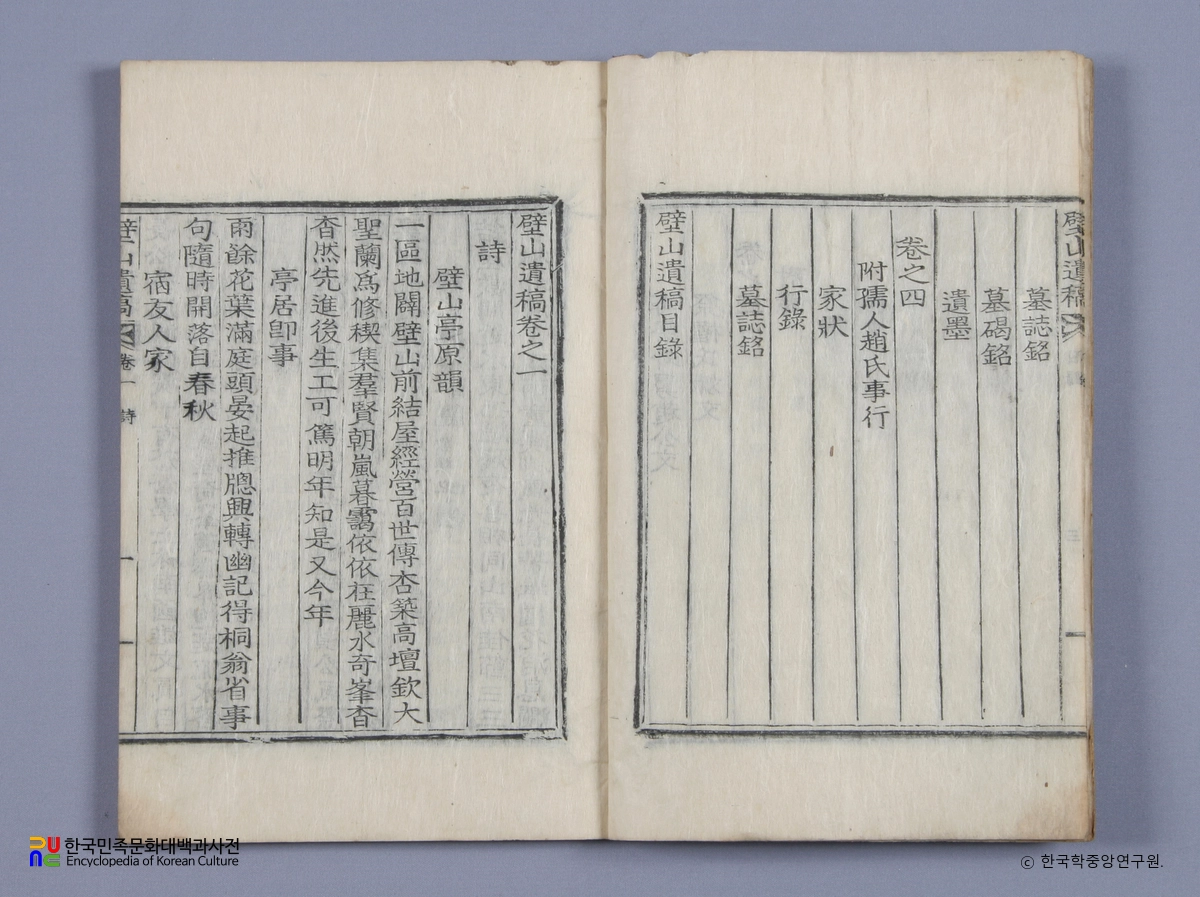 璧山遺稿
墓誌銘
墓碣銘
遺墨
卷之四
附孺人趙氏事行
家狀
行錄
墓誌銘
璧山遺稿目錄
璧山遺稿卷之一
詩
璧山亭原韻
一區地闢璧山前結屋經營百世傳杏築高壇欽大
聖蘭爲修稧集羣賢朝嵐暮靄依依在麗水奇峯杳
杳然先進後生工可篤明年知是又今年
亭居卽事
雨餘花葉滿庭頭晏起推牕興轉幽記得桐翁省事
句隨時開落自春秋
宿友人家
璧山遺稿 卷一 詩 一
한국민족문화대백과사전
Encyclopedia of Korean Culture
© 한국학중앙연구원.